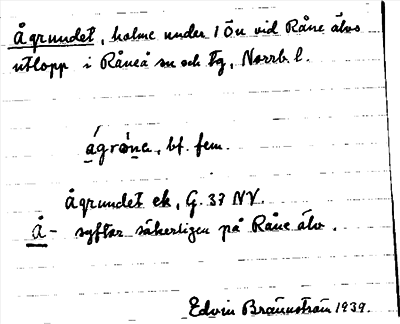 Ågrundet, holme under 1 Ön vid Råne älvs
utlopp i Råneå sn och tg, Norrb. l.
ågróne, bf. fem.
Ågrundet ek, G. 37 NV.
Å- syftar säkerligen på Råne älv.
Edvin Brännström 1939.